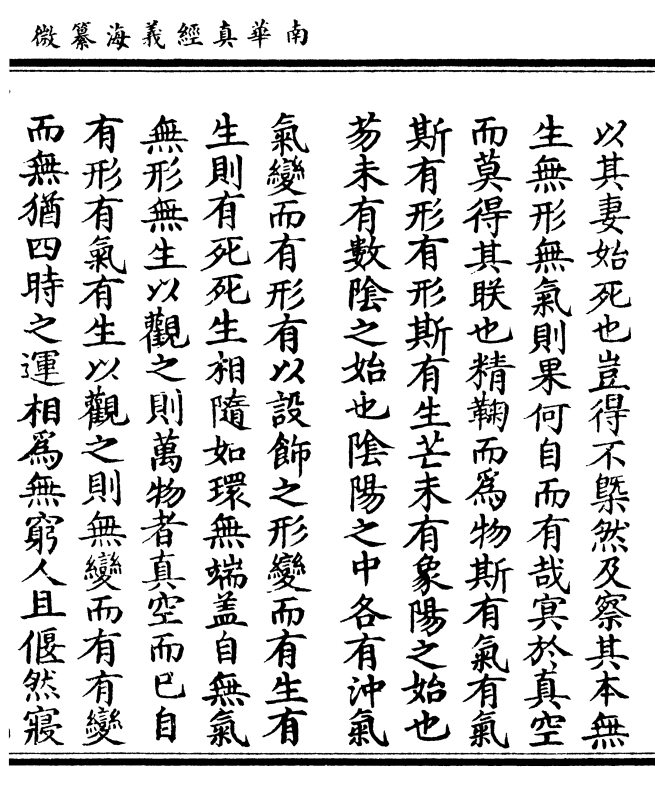 南華真經義海纂微
以其妻始死也豈得不槩然及察其本無
生無形無氣則果何自而有哉冥於真空
而莫得其眹也精鞠而爲物斯有氣有氣
斯有形有形斯有生芒未有象陽之始也
芴未有數陰之始也陰陽之中各有沖氣
氣變而有形有以設飾之形變而有生有
生則有死死生相隨如環無端盖自無氣
無形無生以觀之則萬物者真空而已自
有形有氣有生以觀之則無變而有有變
而無猶四時之運相爲無窮人且偃然寢